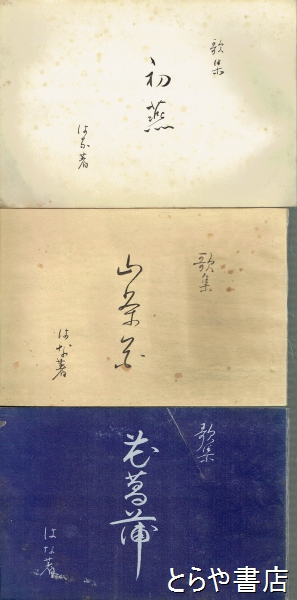 歌集
初燕
はな著
歌集
山茶花
はな著
歌集
花菖蒲
はな著
とらや書店